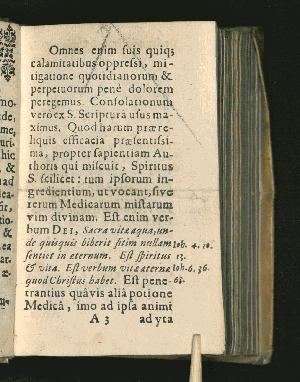 Omnes enim suis quiq;
calamitatibus oppressi, mi-
tigatione quotidianorum &
perpetuorum penè dolorem
peregemus. Consolationum
vero ex S. Scriptura usus ma-
ximus. Quod harum præ re-
liquis efficacia præsentissi-
ma, propter sapientiam Au-
thoris qui miscuit, Spiritus
S. scilicet: tum ipsorum in-
gredientium, ut vocant, sive
rerum Medicarum mistarum
vim divinam. Est enim ver-
bum DEI, Sacra vitæ aqua, un-
de quisquis biberit sitim nullam Ioh. 4. 10.
sentiet in eternum. Est spiritus 13.
& vita. Est verbum vitæ æternæ Ioh. 6. 36.
quod Christus habet. Est pene- 68.
trantius quâvis aliâ potione
Medicâ, imo ad ipsa animi
A 3 ad yta